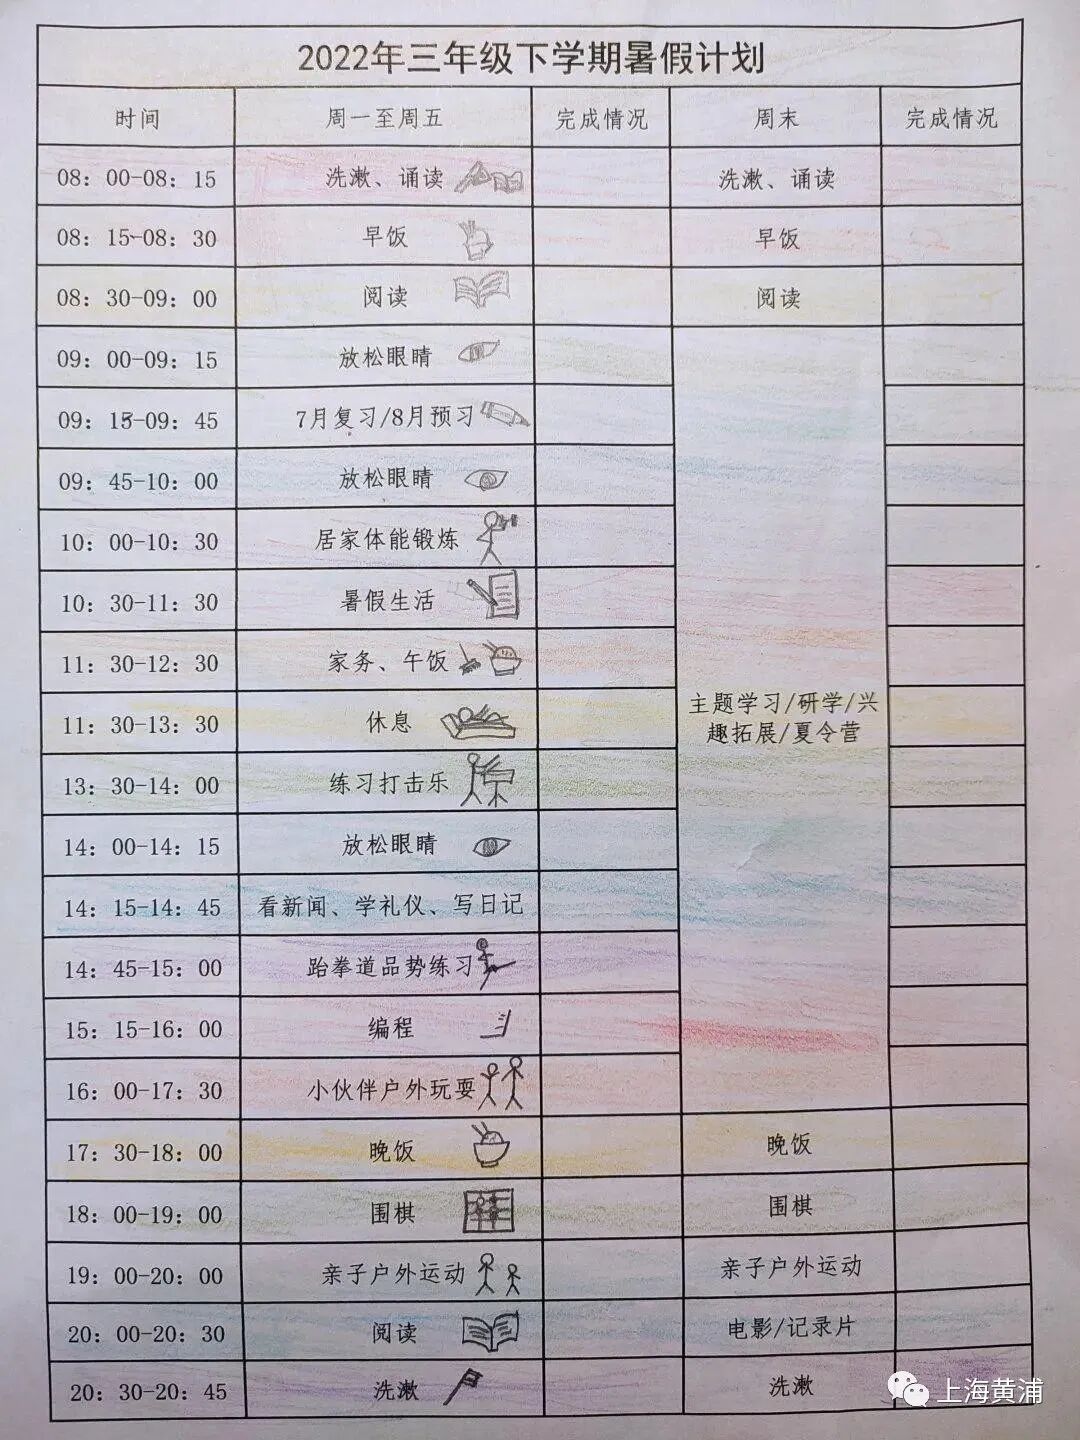 2022年三年级下学期暑假计划
时间 周一至周五 完成情况 周末 完成情况
08：00-08：15 洗漱、诵读 洗漱、诵读
08：15-08：30 早饭 早饭
08：30-09：00 阅读 阅读
09：00-09：15 放松眼睛
09：15-09：45 7月复习/8月预习
09：45-10：00 放松眼睛
10：00-10：30 居家体能锻炼
10：30-11：30 暑假生活
11：30-12：30 家务、午饭
11：30-13：30 休息
主题学习/研学/兴
趣拓展/夏令营
13：30-14：00 练习打击乐
14：00-14：15 放松眼睛
14：15-14：45 看新闻、学礼仪、写日记
14：45-15：00 跆拳道品势练习
15：15-16：00 编程
16：00-17：30 小伙伴户外玩耍
17：30-18：00 晚饭 晚饭
18：00-19：00 围棋 围棋
19：00-20：00 亲子户外运动 亲子户外运动
20：00-20：30 阅读 电影/记录片
20：30-20：45 洗漱 洗漱
上海黄浦